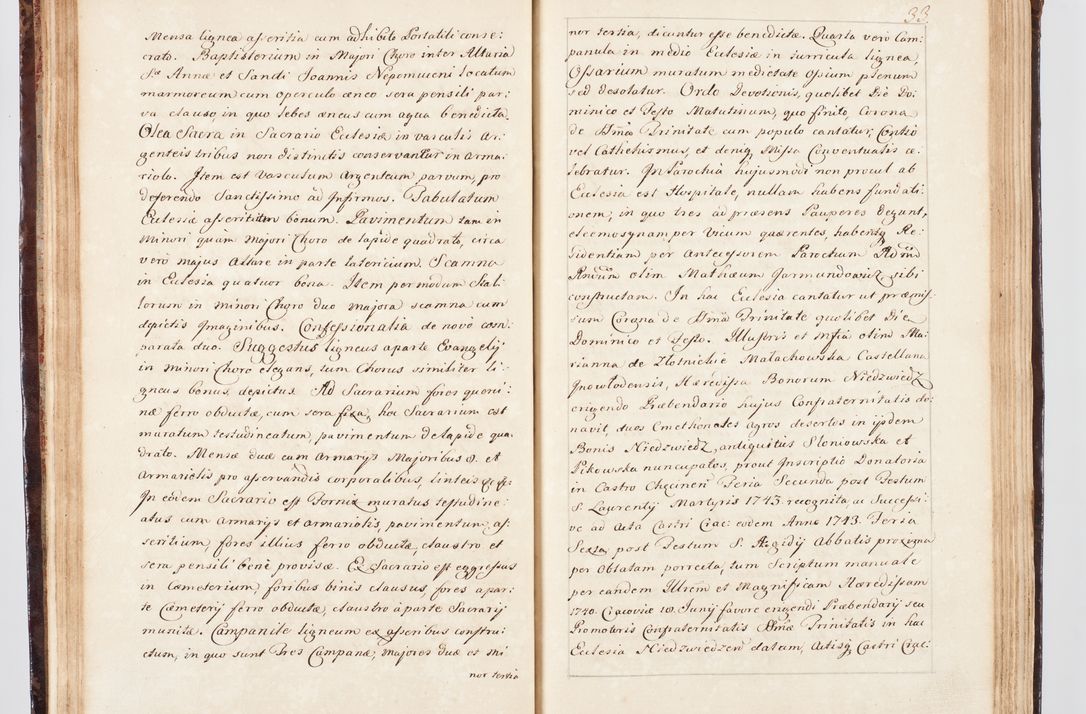 Mensa lignea asseritia cum adhibito Portatili conse:
crato. Baptisterium in Majori Choro inter Altaria
Stæ Annæ et Sancti Joannis Nepomuceni locatum
marmoreum cum operculo æneo sera pensili par:
va clauso, in quo lebes æneus cum aqua benedicta.
Olea Sacra in Sacrario Ecclesiæ in vasculis ar:
genteis tribus non distinctis conservantur in arma:
riolo. Item est vasculum argenteum parvum, pro
deferendo Sanctissimo ad Infirmos. Tabulatum
Ecclesiæ asserititum bonum. Pavimentum tam in
minori quàm majori Choro de lapide quadrato, circa
verò majus Altare in parte latericium. Scamna
in Eclesia quatuor bona. Item per modum Stal:
lorum in minori Choro duo majora scamna cum
depictis Imaginibus. Confessionalia de novò com:
parata duo. Suggestus ligneus a parte Evangelij
in minori Choro elegans, tum Chorus similiter li:
gneus bonus, depictus. Ad Sacrarium fores quoni:
næ ferro obductæ, cum sera fixa, hoc Sacrarium est
muratum testudineatum, pavimentum de lapide qua:
drato. Mensæ duæ cum Armarijs Majoribus 8. et
Armariolis pro asservandis corporalibus, linteis
In eodem Sacrario est Fornix muratus testudine:
atus cum armarijs et armariolis, pavimentum, as:
seritium, fores illius ferro obductæ, claustro et
sera pensili benè provisæ. Ex Sacrario est egressus
in Cæmeterium, foribus binis clausus, fores a par:
te Cæmeterij ferro obductæ, claustro à parte Sacrarij
munitæ. Campanile ligneum ex asseribus constru:
ctum, in quo sunt Tres Campanæ, majores duæ et mi
nor tertia
33
nor tertia, dicuntur esse benedictæ. Quarta verò Cam:
panula in medio Eclesiæ in turricula lignea,
Ossarium muratum medietate ossium plenum
sed desolatur. Ordo Devotionis, quolibet Die Do:
minico et Festo Matutinum, quo finito, Corona
de SSma Trinitate cum populo cantatur; Contio
vel Cathehismus, et deniq Missa Conventualis ce:
lebratur. In Parochia hujusmodi non procul ab
Eclesia est Hospitale, nullam habens fundati:
onem; in quo tres ad præsens Pauperes degunt,
eleemosynam per vicum quærentes, habentq Re:
sidentiam per Antecessorem Parochum Admodum
Rndum olim Mathæum Jarmundowicz sibi
constructam. In hac Eclesia cantatur ut præmis:
sum Corona de SSma Trinitate quolibet Die
Dominico et Festo. Illustris et Mfica olim Ma:
rianna de Złotnickie Małachowska Castellana
Inowłodensis, Hæredissa Bonorum Niedzwiedz
erigendo Præbendario hujus Confraternitatis do:
navit, duos Cmethonales agros desertos in ijsdem
Bonis Niedzwiedz, antiquitùs Słoniowska et
Pikowska nuncupatos, prout Inscriptio Donatoria
in Castro Chęcinen Feria Secunda post Festum
S. Laurentij Martyris 1743 recognita, ac Successi:
vè ad Acta Castri Crac: eodem Anno 1743. Feria
Sexta post Festum S. Ægidij Abbatis proxima
per Oblatam porrecta, tum Scriptum manuale
per eandem Illrem et Magnificam Hæredissam
1740. Cracoviæ 10. Junij favore erigendi Præbendarij seu
Promotoris Confraternitatis SSmæ Trinitatis in hac
Eclesia Niedzwiedzen datum, Actisq Castri Crac: